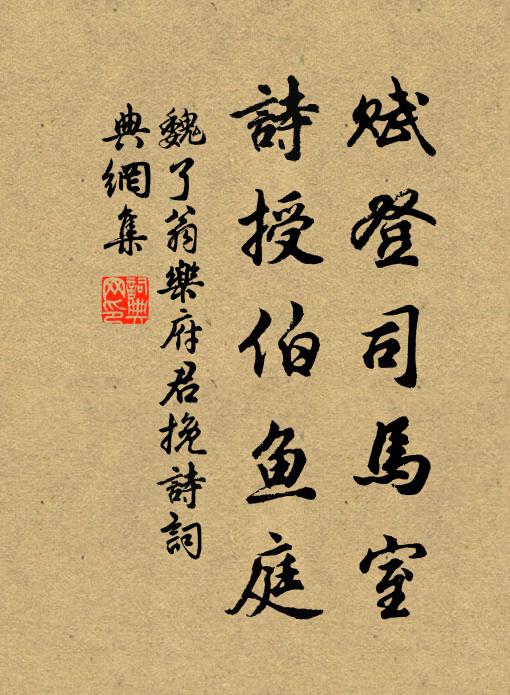 賦登司馬室
詩授伯鱼庭
魏了翁樂府君挽詩詞
典網集
詞典
网印